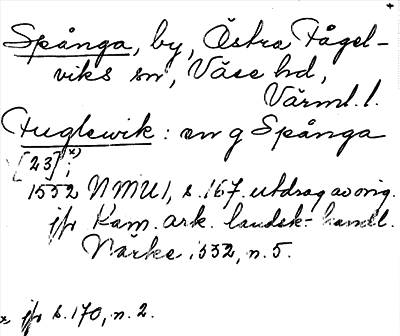 Spånga, by, Östra Fågel-
viks sn, Väse hd,
Värml. l.
Fuglewik : en g Spånga
[23] x);
1552 NMU 1, s. 167. utdrag av orig.
jfr Kam. ark. landsk.-handl.
Närke 1552, n. 5.
x, jfr s. 170, n. 2.